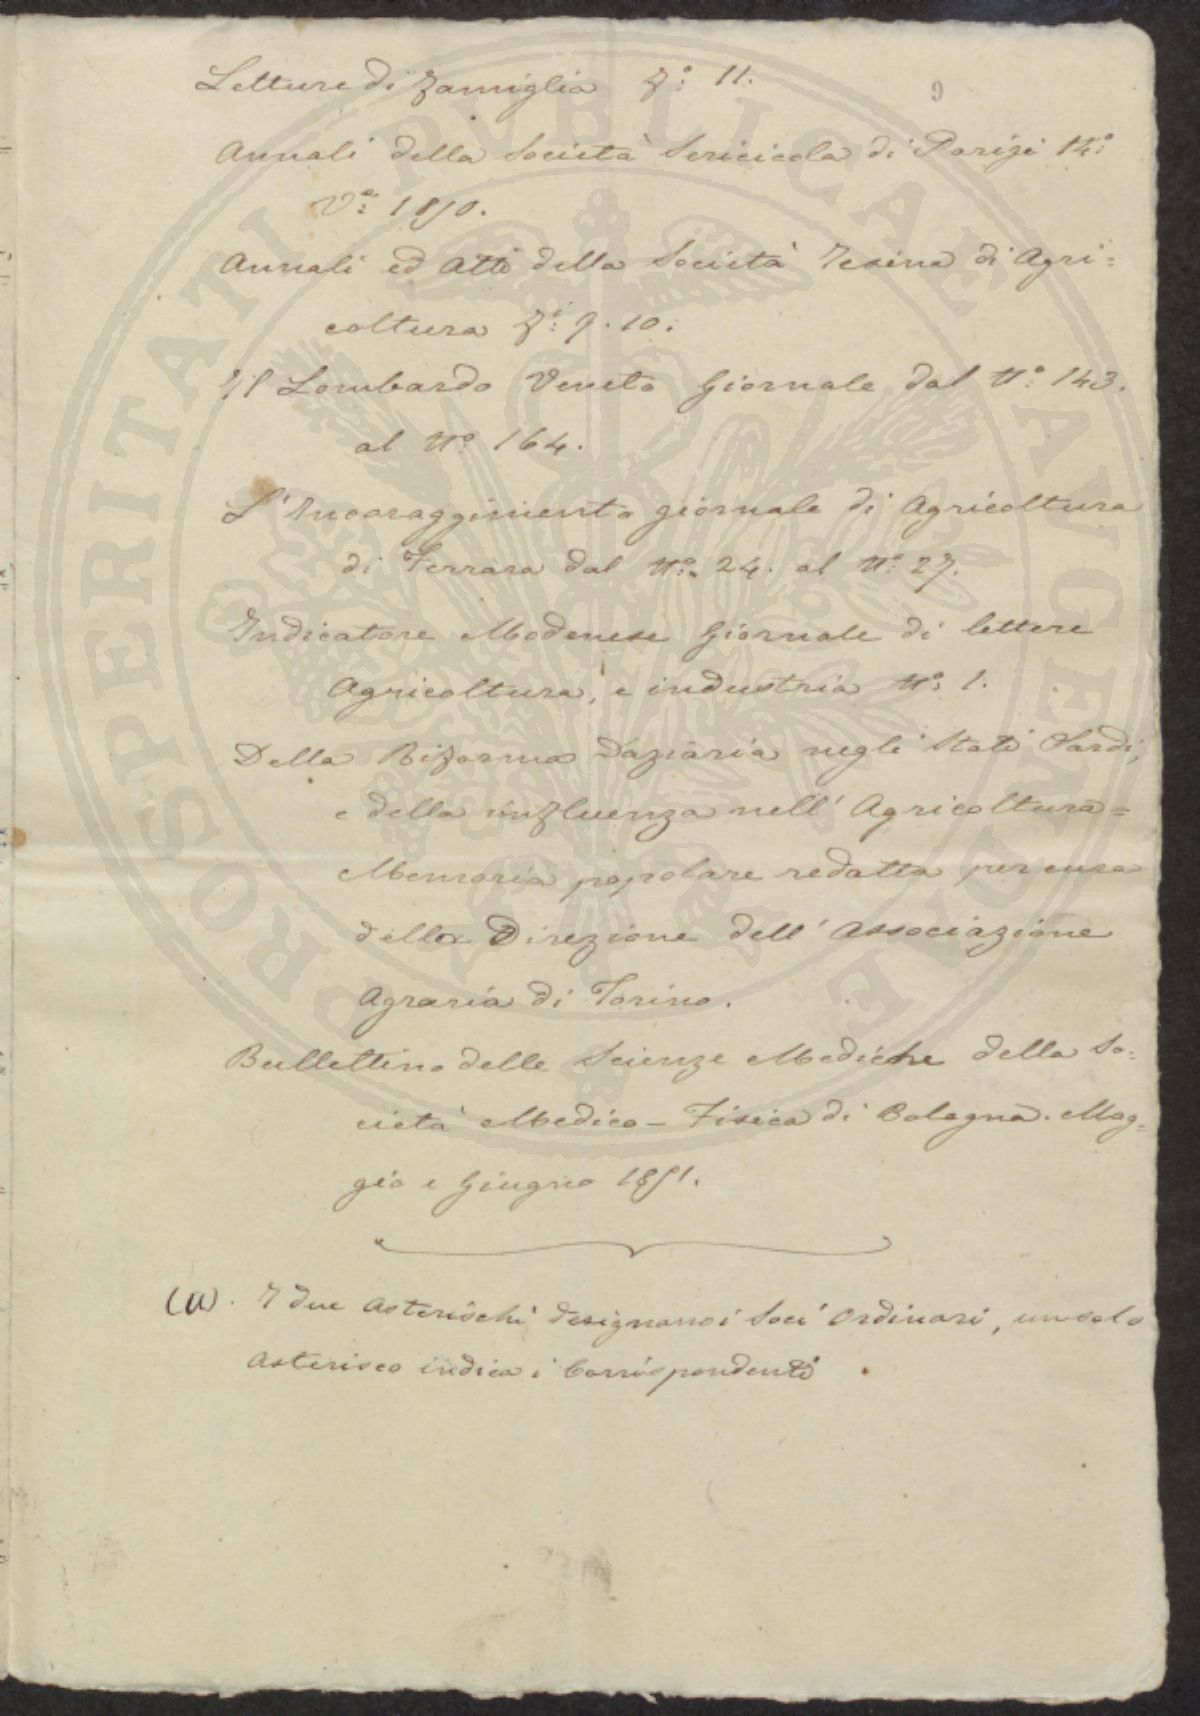 9
Letture di Famiglia F.o 11.
Annali della Società Sericicola di Parigi 14.o
V.e 1850.
Annali ed Atti della Società Jesina di Agri=
coltura F.i 9. 10.
Il Lombardo Veneto Giornale dal N.o 143.
al N.o 164.
L'Incoraggimento giornale di Agricoltura
di Ferrara dal N.o 24. al N.o 27.
Indicatore Modenese Giornale di lettere
Agricoltura, e industria N.o 1.
Della Riforma Daziaria negli Stati Sardi,
e della influenza nell'Agricoltura=
Memoria popolare redatta per cura
della Direzione dell'Associazione
Agraria di Torino.
Bullettino delle Scienze Mediche della So=
cietà Medico-Fisica di Bologna. Mag=
gio e Giugno 1851.
(a). I due Asterischi designano i Soci Ordinari, un solo
Asterisco indica i Corrispondenti
PROSPERITATI PUBLICAE AUGENDAE